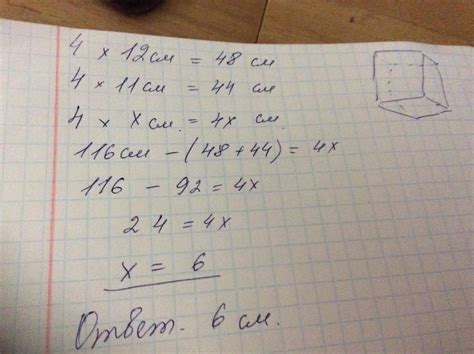 4 × 12см = 48 см
4 × 11см = 44 см
4 × x см. = 4x см.
116см - (48+44) = 4x
116 - 92 = 4x
24 = 4x
x = 6
Ответ. 6 см.